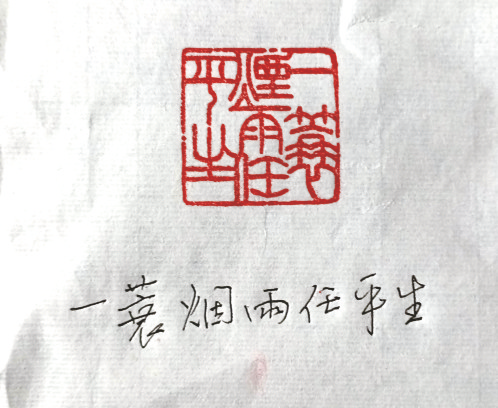 一蓑
煙雨任
平生
一蓑烟雨任平生